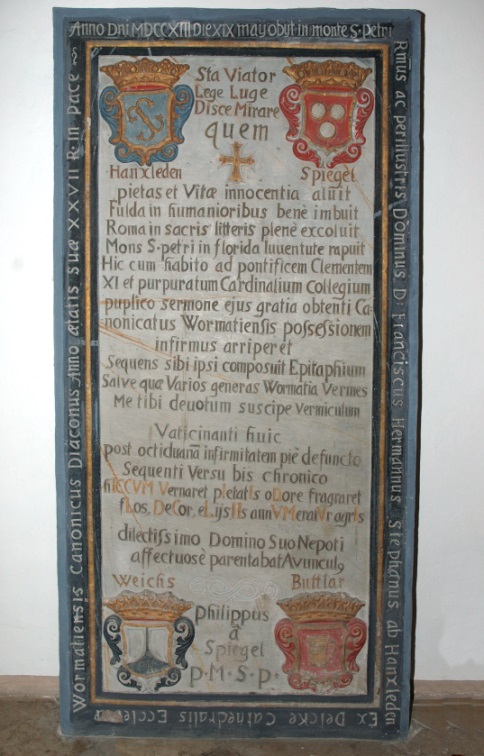 Anno Dni MDCCXIII Die XIX mayo obyt in monte S. Petri
Rm̃us ac perillustris Dõminus D: Franciscus Hermannus Stephanus ab Hanxleden
Ex Deicke Cathedralis Eccleſ
Wormatiensis Canonicus Diâconus Anno ætatis suæ XXVII R. in pace
Sta Viator
Lege Luge
Disce Mirare
quem
Hanxleden Spiegel
pietas et Vitæ innocentia aluit
Fulda in humanioribus benè imbuit
Roma in sacris litteris plenè excoluit
Mons S. petri in florida Iuuentute rapuit
Hic cum habito ad pontificem Clementem
XI et purpuratum Cardinalium Collegium
puplico sermone ejus gratia obtenti Ca-
nonicatus Wormatiensis possessionem
infirmus arriperet
Sequens sibi ipsi composuit Epitaphium
Salve quæ Varios generas Wormatia Vermes
Me tibi deuotum suscipe Vermiculum
Vaticinanti huic
post octiduanã infirmitatem piè defuncto
Sequenti Versu bis chronico
hICCVM Vernaret pIetatIs oDore fragraret
fLos. DeCor. eLysIIs
dilectissimo Domino Suo Nepoti
affectuosè parentabat Avuncul9
Weichs Buttlar
Philippus
â
Spiegel
p. M. S. p.